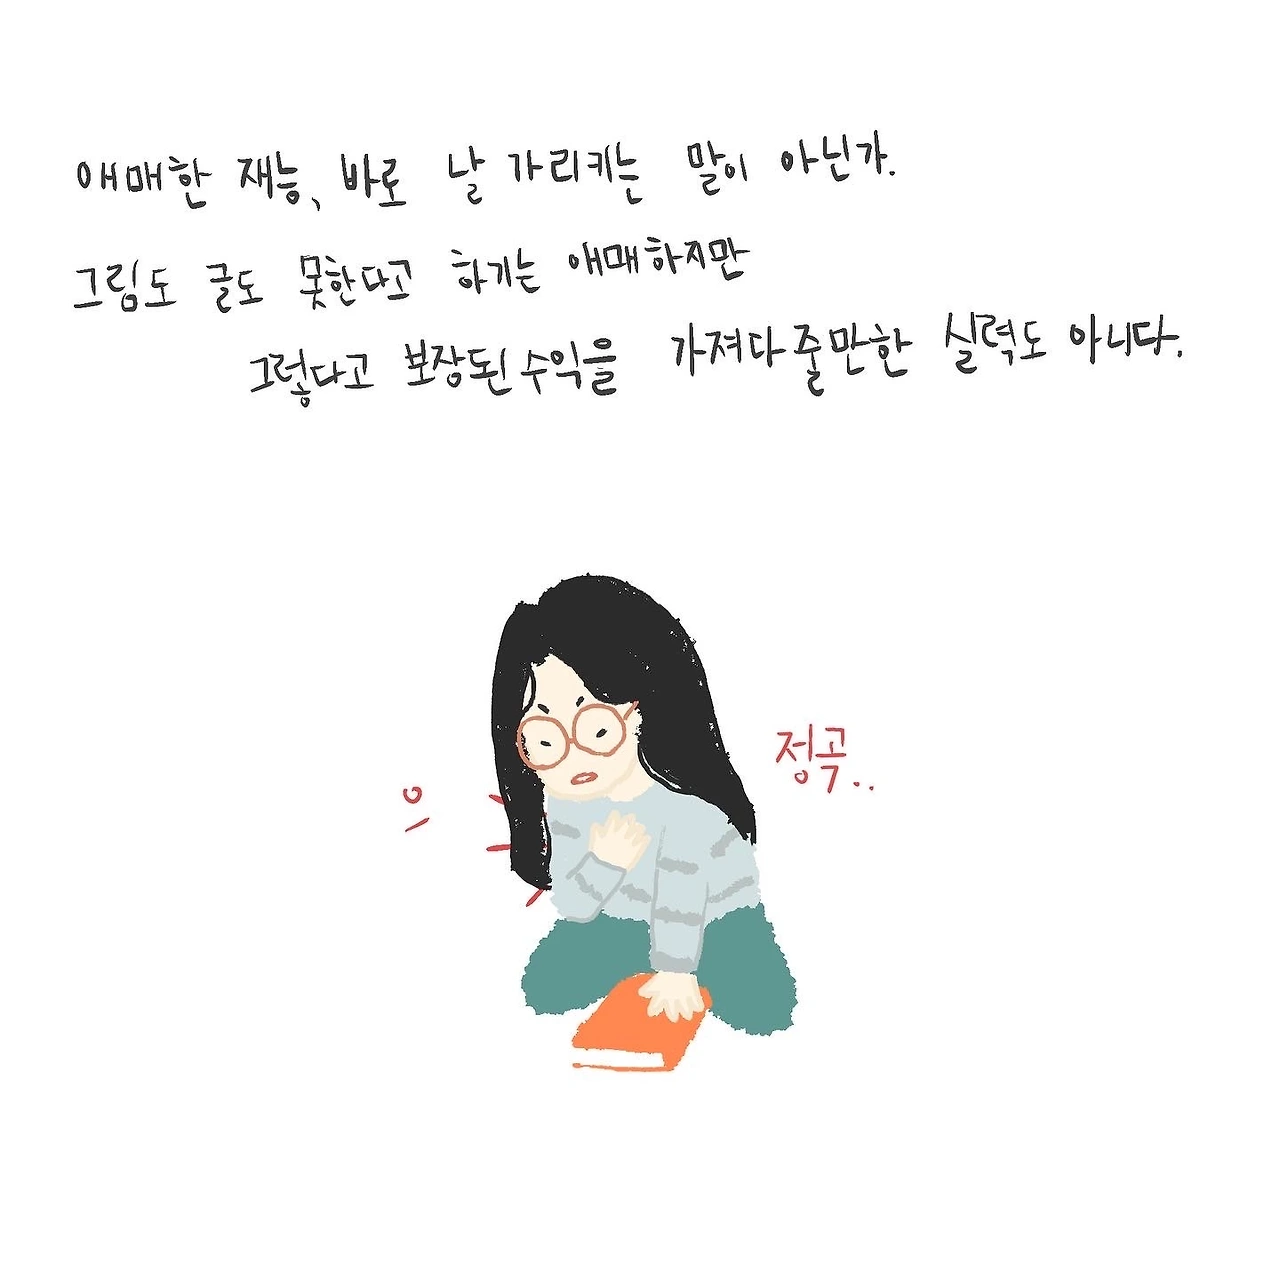 애매한 재능, 바로 날 가리키는 말이 아닌가.
그림도 글도 못한다고 하기는 애매하지만
그렇다고 보장된 수익을 가져다줄만한 실력도 아니다.
정곡..
으